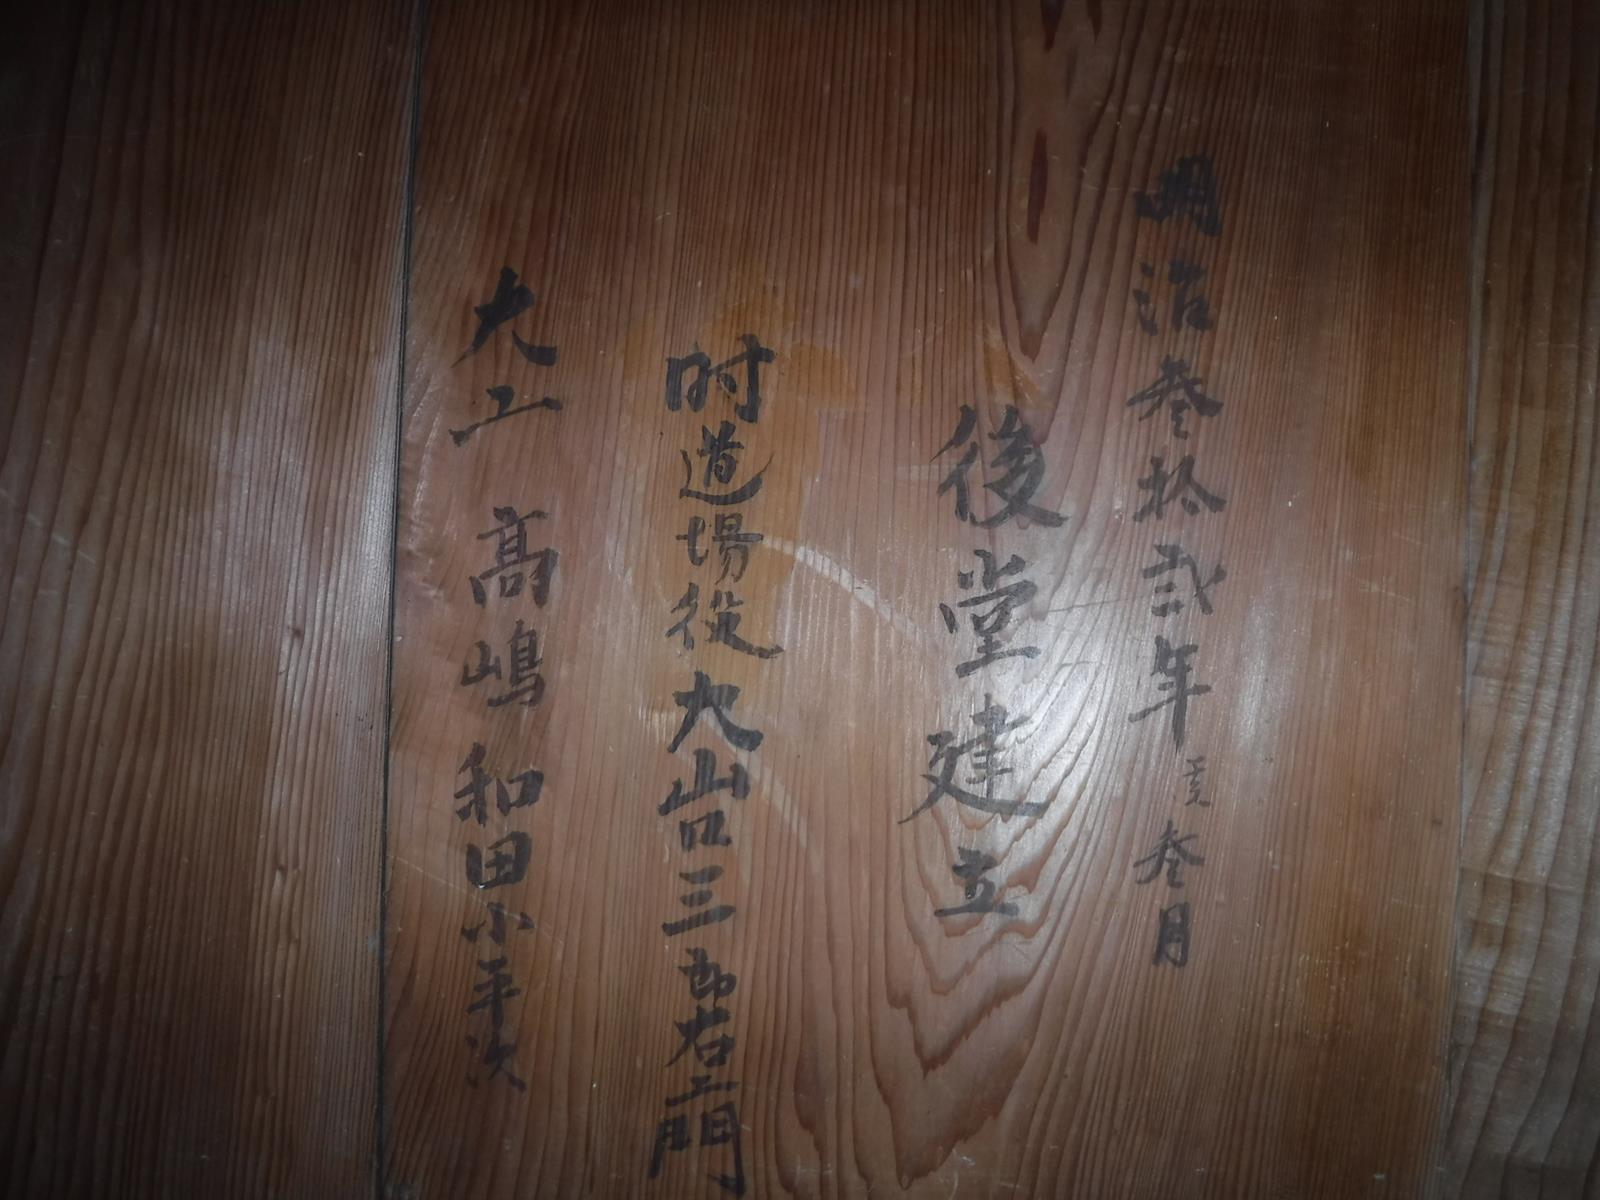 明治参拾弐年亥参月
後堂建立
时道場役大山口三郎右エ門
大工 高嶋 和田小平次